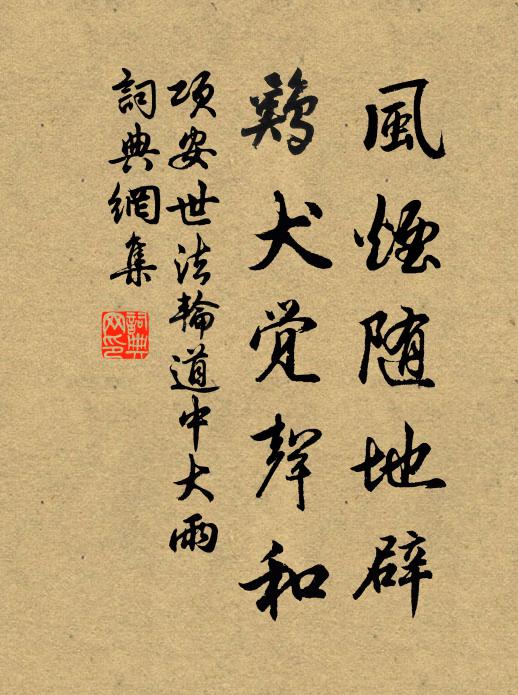 風煙随地辟
鷄犬覚聲和
项安世法輪道中大雨
詞典網集
詞典
网印